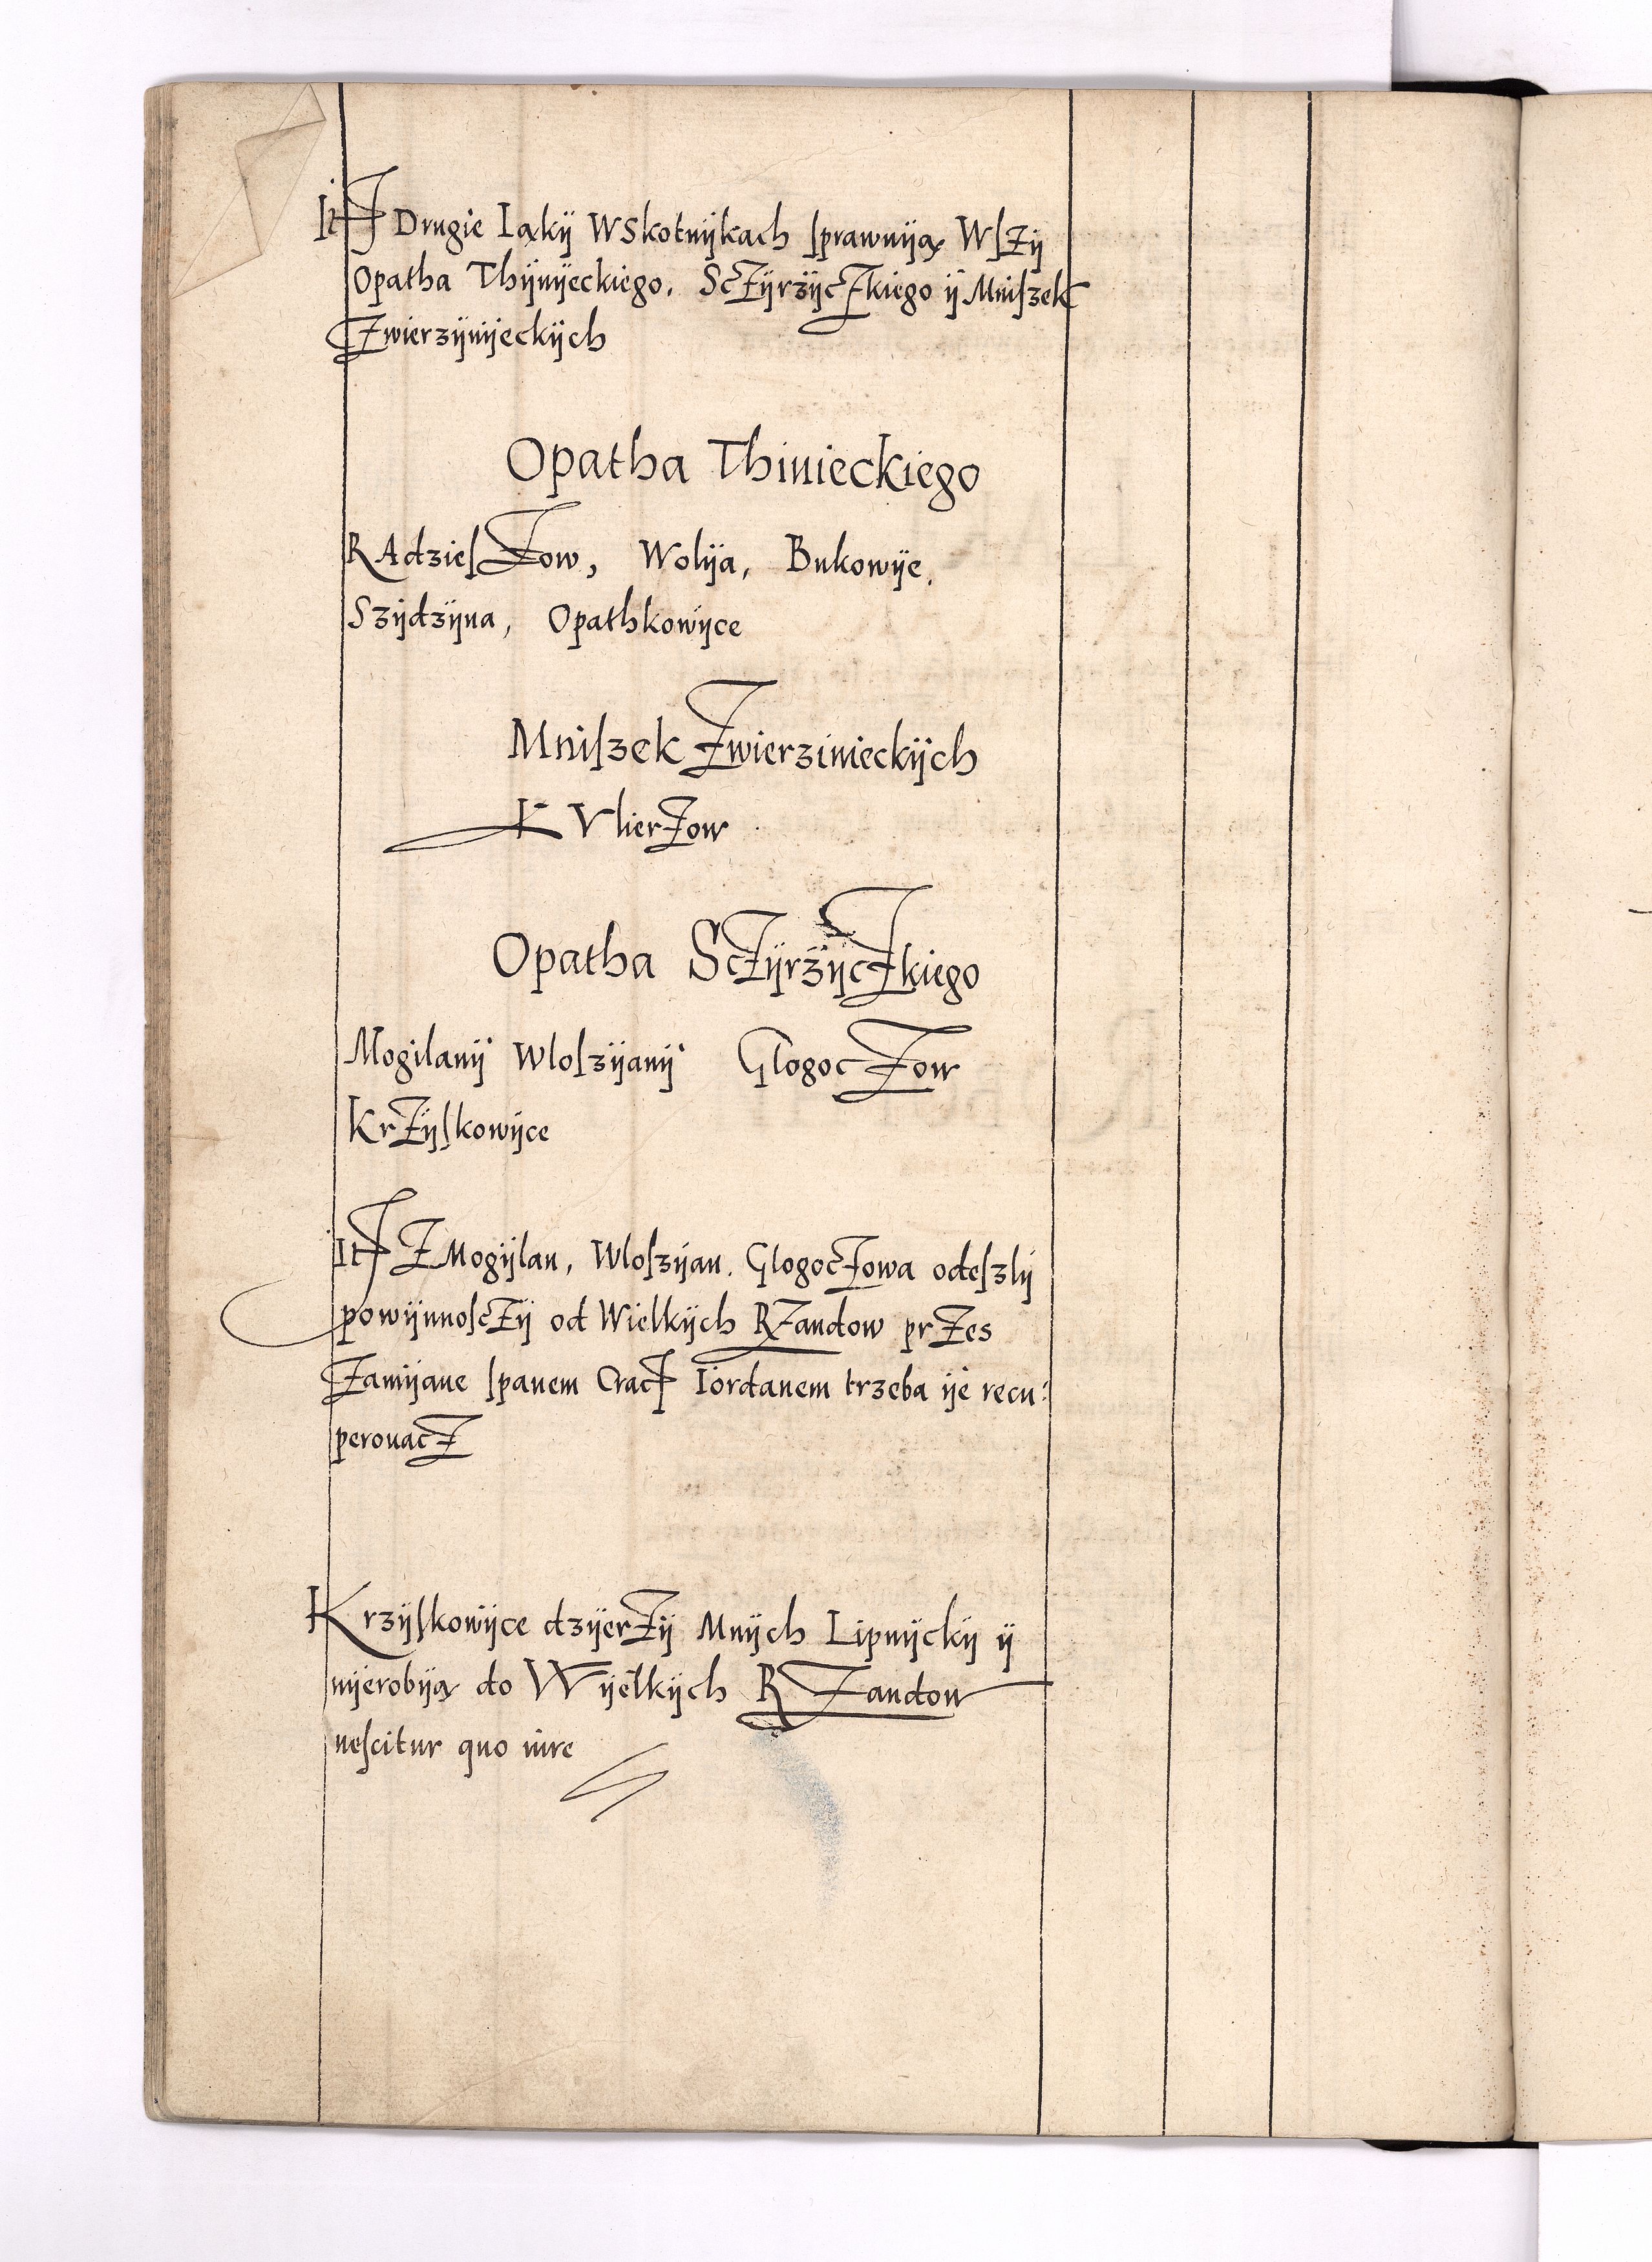 It Drugie Iąkÿ WSkotnÿkach ſprawuÿą WſZÿ
Opatha Thÿnÿeckiego. ScZÿrzÿcZkiego ÿ Mniſzek
Zwierzÿnÿeckÿch
Opatha Thinieckiego
RAdzieſZow, Wolÿa, Bukowÿe,
Szÿdzÿna, Opathkowÿce
Mniſzek Zwierzinieckÿch
K VlierZow
Opatha ScZÿrzÿcZkiego
Mogilanÿ Wloſzÿanÿ GlogocZow
KrZÿſkowÿce
It Z Mogÿlan, Wloſzÿan. GlogocZowa odeſzlÿ
powÿnnoſcZÿ od Wielkÿch RZandow prZes
Zamÿane ſpanem Crac Iordanem trzeba ÿe recu:
perouacZ
Krzÿſkowÿce dzÿerZÿ Mnÿch Lipnÿckÿ ÿ
nÿerobÿą do Wÿelkÿch RZandow
neſcitur quo iure